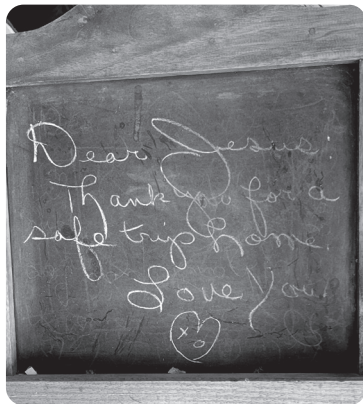 Dear Jesus,
Thank you for a
safe trip home.
Love You!
xo